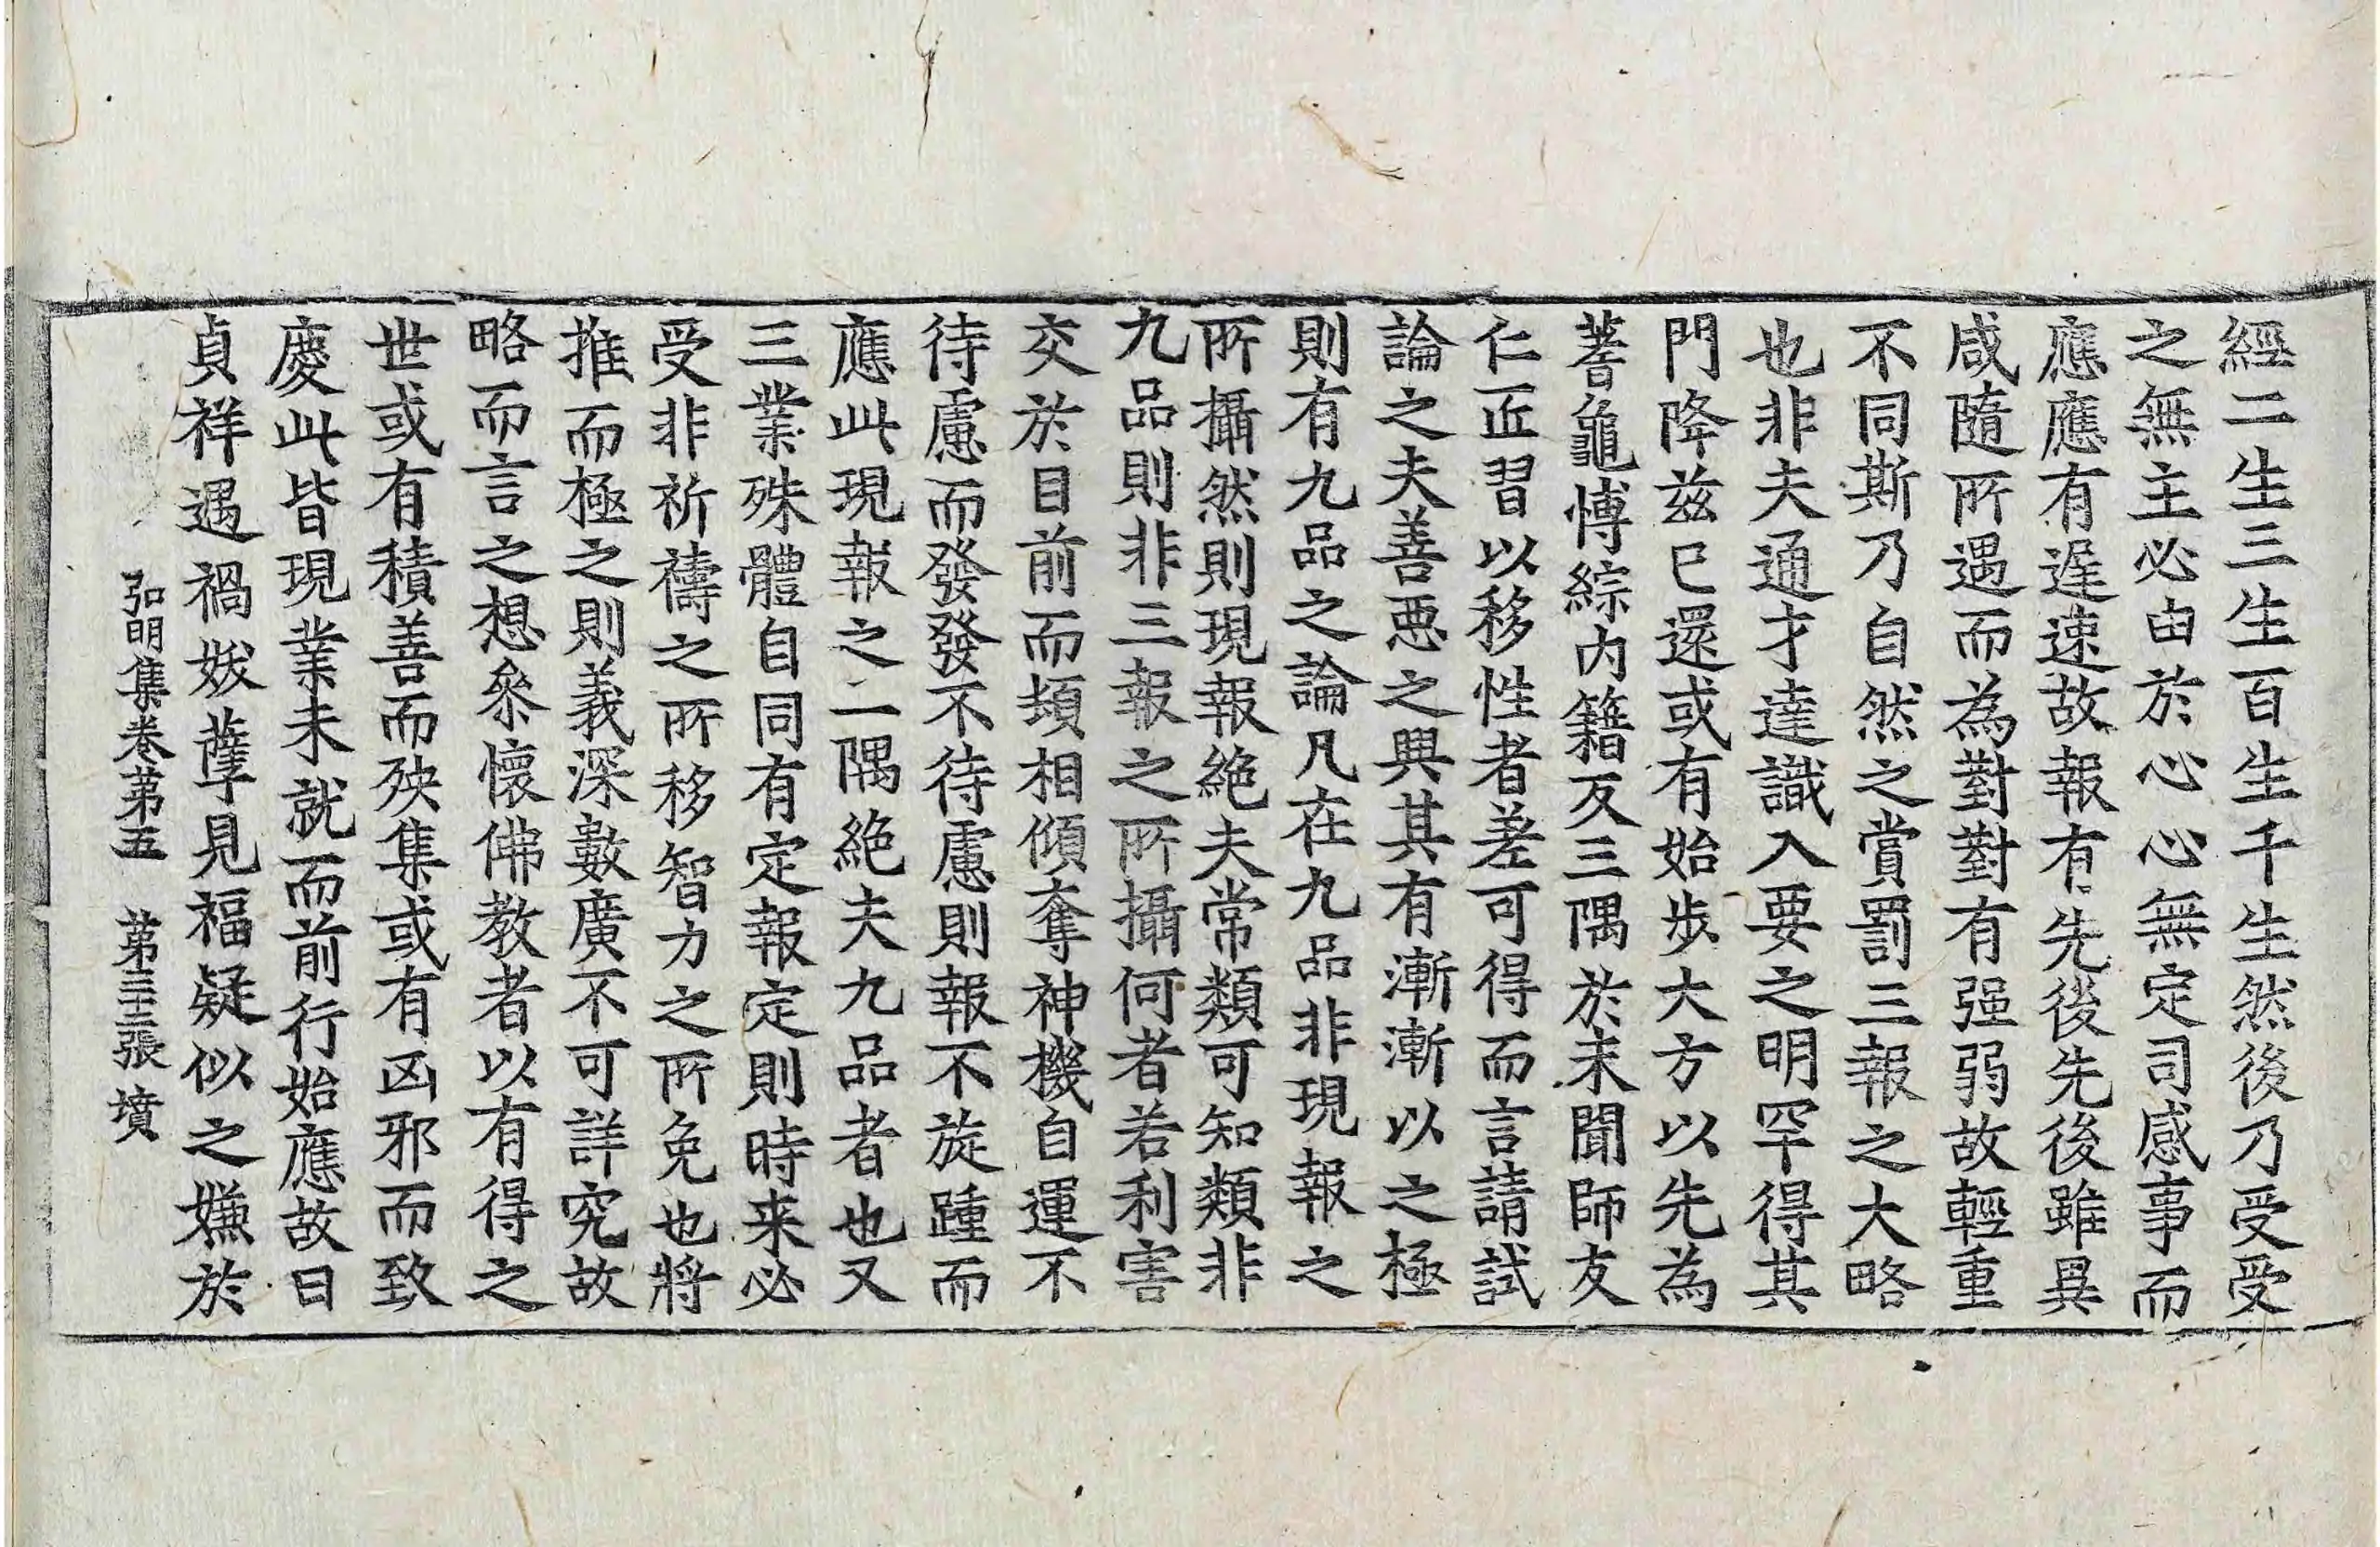 經二生三生百生千生然後乃受受
之無主必由於心心無定司感事而
應應有遲速故報有先後先後雖異
咸隨所遇而為對對有强弱故輕重
不同斯乃自然之賞罰三報之大略
也非夫通才達識入要之明罕得其
門降兹已還或有始步大方以先為
蓍龜愽綜內籍反三隅於未聞師友
仁匠習以移性者差可得而言請試
論之夫善惡之興其有漸漸以之極
則有九品之論凡在九品非現報之
所攝然則現報絶夫常類可知類非
九品則非三報之所攝何者若利害
交於目前而頃相傾奪神機自運不
待慮而發發不待慮則報不旋踵而
應此現報之一隅絶夫九品者也又
三業殊體自同有定報定則時来必
受非祈禱之所移智力之所免也將
推而極之則義深數廣不可詳究故
略而言之想叅懷佛教者以有得之
世或有積善而殃集或有凶邪而致
慶此皆現業未就而前行始應故曰
貞祥遇禍妖孽見福疑似之嫌於
弘明集卷苐五 苐三十三張 墳